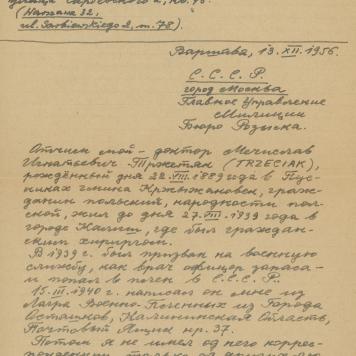 улица Сарбевского 2, кв. 78
(Warszawa 32,
ul. Sarbiewskiego 2, m. 78).
Варшава, 13.XII.1956.
С.С.С.Р.
город Москва
Главное Управление
Милиции
Бюро Розыска.
Отчим мой - доктор Мечислав
Игнатьевич Тржетяк (TRZECIAK),
рождённый дня 22.VIII.1889 года в
гмина гражданин
польский, народности поль-
ской, жил до дня 27.VIII.1939 года в
городе Калиш, где был граждан-
ским хирургом.
В 1939 г. был призван на военную
службу, как врач офицер запаса -
и попал в плен в С.С.С.Р.
15.III.1940 г. написал он мне из
Лагря Военно-Пленных из Города
Осташков, Калининская Область,
Почтовый Ящик нр. 37.
Потом я не имел от него коррес-